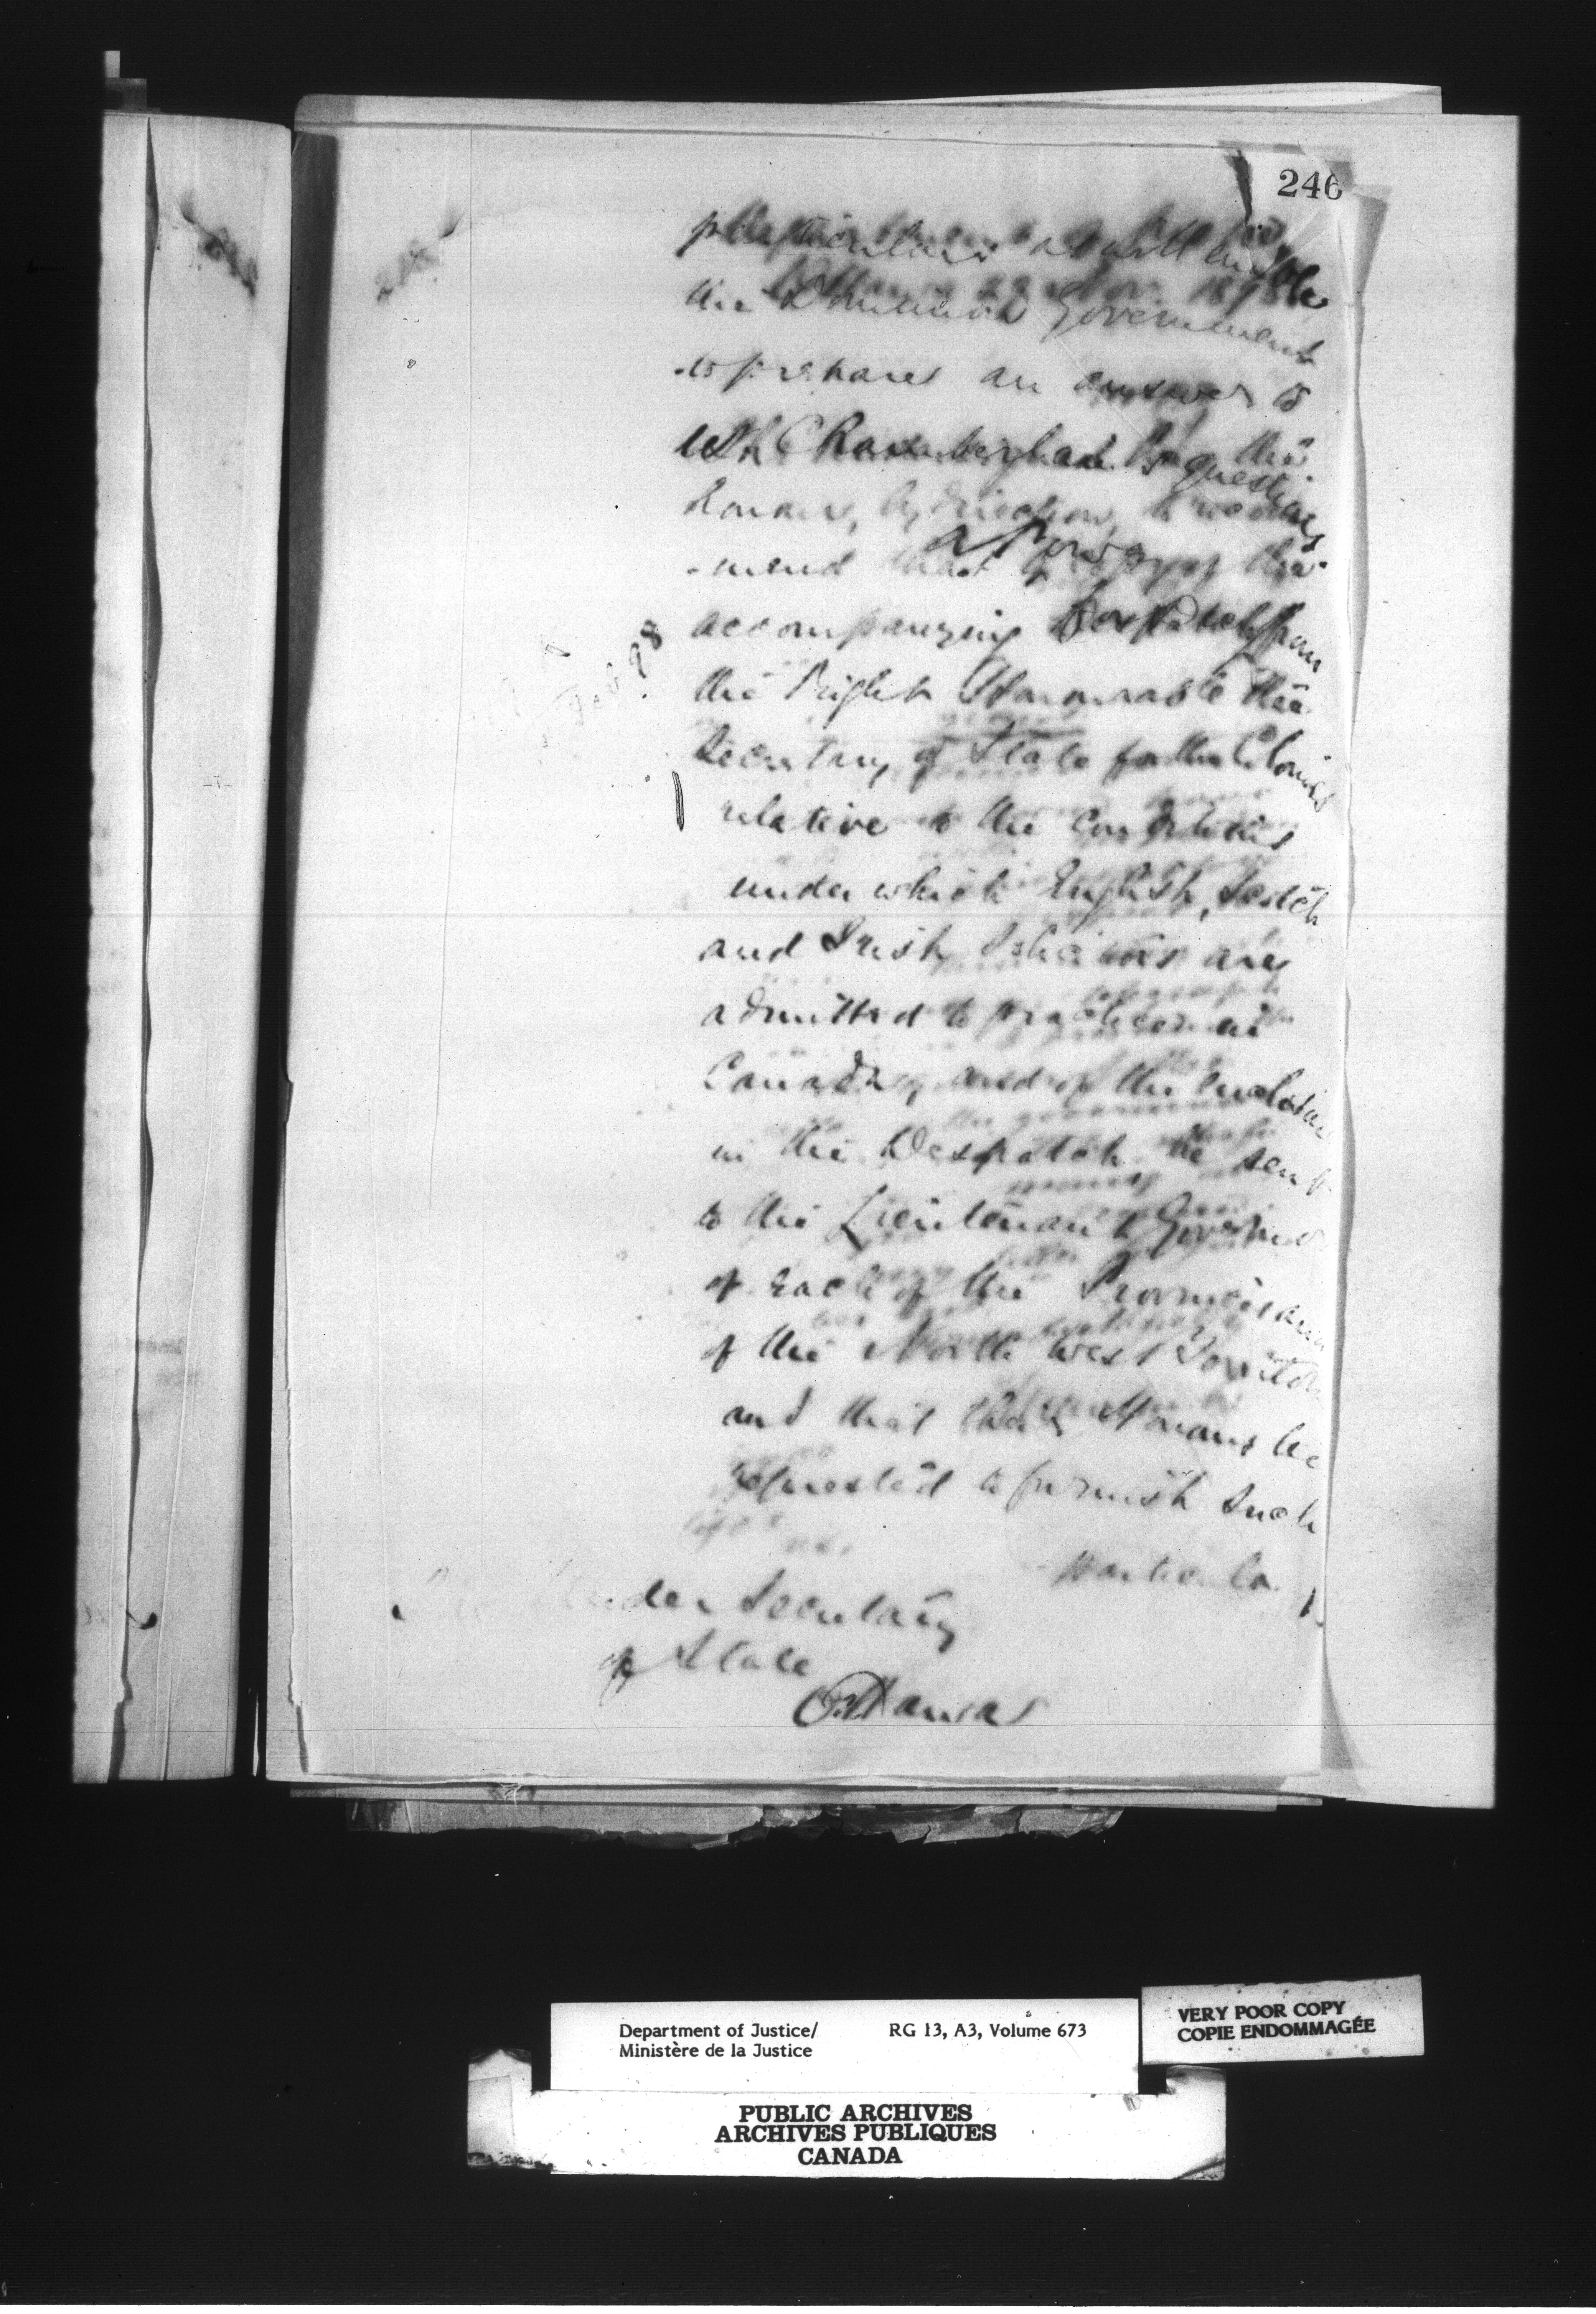 246
particulars as will enable
the Dominion Government
to prepare an answer to
Mr Chamberlain's questions
honour, by direction, to recom
-mend that a copy of the
accompanying Despatch from
the Right Honourable the
Secretary of State for the Colonies
relative to the conditions
under which English, Scotch
and Irish Solicitors are
admitted to practice in
Canada, and of the enclosure
in the Despatch be sent
to the Lieutenant Governor
of each of the Provinces and
of the North West Territor
and that their Honours be
requested to furnish such
particula
Feb 98
Under Secretary
of State
Ottawa
Department of Justice/
Ministère de la Justice
RG 13, A3, Volume 673
VERY POOR COPY
COPIE ENDOMMAGÉE
PUBLIC ARCHIVES
ARCHIVES PUBLIQUES
CANADA